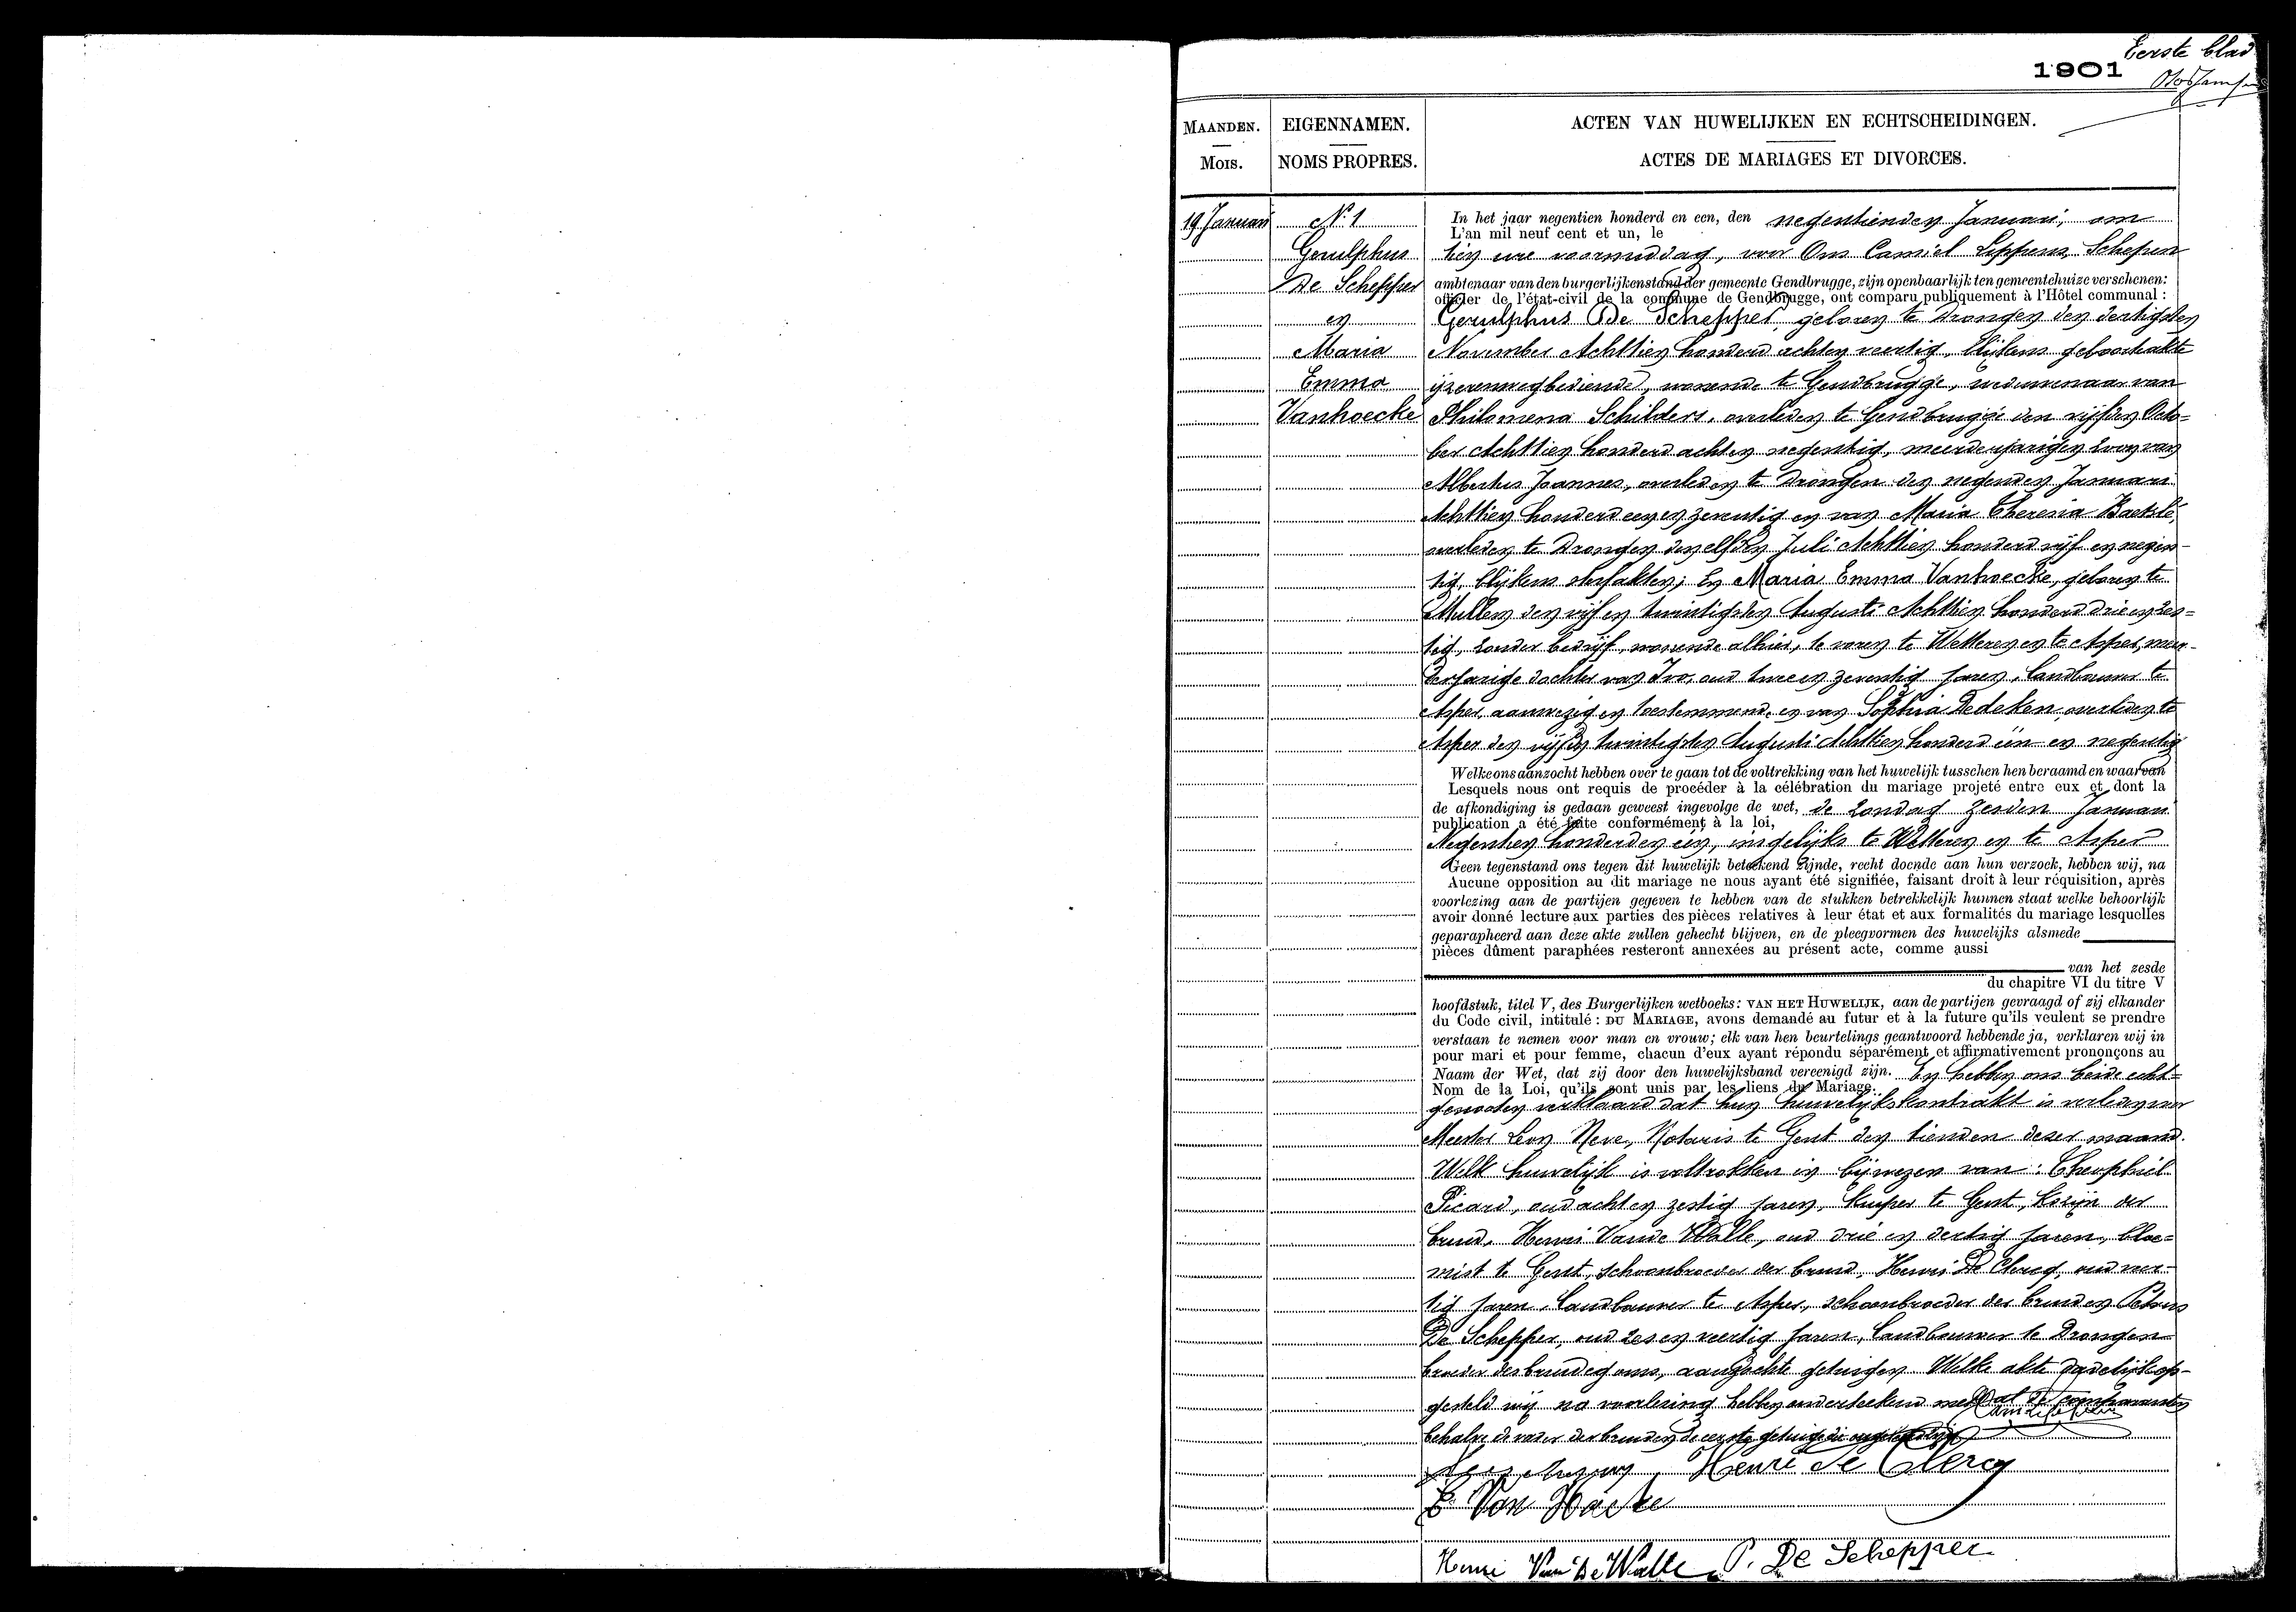 Eerste blad
1901
MAANDEN.
Mois.
EIGENNAMEN.
NOMS PROPRES.
ACTEN VAN HUWELIJKEN EN ECHTSCHEIDINGEN.
ACTES DE MARIAGES ET DIVORCES.
19 Januari
N.º 1
Gerulphus
De Schepper
en
Maria
Emma
Vanhoecke
In het jaar negentien honderd en een, den negentienden Januari, om
L'an mil neuf cent et un, le
tien ure voormiddag, voor Ons Camiel Leppens, Schepen
ambtenaar van den burgerlijkenstand der gemeente Gendbrugge, zijn openbaarlijk ten gemeentehuize verschenen:
officier de l'état-civil de la commune de Gendbrugge, ont comparu publiquement à l'Hôtel communal :
Gerulphus De Schepper, geboren te Drongen den dertigsten
November Achttien honderd achten veertig, blijkens geboorteakte
ijzerenwegbediende, wonende te Gendbrugge, weduwenaar van
Philomena Schilders, overleden te Gendbrugge den vijfden Octo=
ber Achttien honderd achten negentig, meerderjarigen zoon van
Albertus Joannes, overleden te Drongen den negenden Januari
Achttien honderd een en zeventig en van Maria Theresia Baetslé,
overleden te Drongen den elfden Juli Achttien honderd vijf en negen-
tig, blijkens sterfakten; En Maria Emma Vanhoecke, geboren te
Mullem den vijf en twintigsten Augusti Achttien honderd drie en zes=
tig, zonder bedrijf, wonende alhier, te voren te Wetteren en te Asper, meer-
derjarige dochter van Ivo, oud twee en zeventig jaren, landbouwer te
Asper, aanwezig en toestemmend, en van Sophia Dedeken, overleden te
Asper den vijf en twintigsten Augusti Achttien honderd één en negentig
Welke ons aanzocht hebben over te gaan tot de voltrekking van het huwelijk tusschen hen beraamd en waarvan
Lesquels nous ont requis de procéder à la célébration du mariage projeté entre eux et dont la
de afkondiging is gedaan geweest ingevolge de wet, de zondag zesden Januari
publication a été faite conformément à la loi,
Negentien honderd en een, insgelijks te Wetteren en te Asper
Geen tegenstand ons tegen dit huwelijk beteekend zijnde, recht doende aan hun verzoek, hebben wij, na
Aucune opposition au dit mariage ne nous ayant été signifiée, faisant droit à leur réquisition, après
voorlezing aan de partijen gegeven te hebben van de stukken betrekkelijk hunnen staat welke behoorlijk
avoir donné lecture aux parties des pièces relatives à leur état et aux formalités du mariage lesquelles
geparapheerd aan deze akte zullen gehecht blijven, en de pleegvormen des huwelijks alsmede
pièces dûment paraphées resteront annexées au présent acte, comme aussi
van het zesde
du chapitre VI du titre V
hoofdstuk, titel V, des Burgerlijken wetboeks: VAN HET HUWELIJK, aan de partijen gevraagd of zij elkander
du Code civil, intitulé : DU MARIAGE, avons demandé au futur et à la future qu'ils veulent se prendre
verstaan te nemen voor man en vrouw; elk van hen beurtelings geantwoord hebbende ja, verklaren wij in
pour mari et pour femme, chacun d'eux ayant répondu séparément et affirmativement prononçons au
Naam der Wet, dat zij door den huwelijksband vereenigd zijn. En hebben ons beide echt=
Nom de la Loi, qu'ils sont unis par les liens du Mariage.
genooten verklaard dat hun huwelijkskontrakt is verleden voor
Meester Leon Neve, Notaris te Gent den tienden dezer maand.
Welk huwelijk is voltrokken in bijwezen van: Theophiel
Picard, oud achten zestig jaren, kuiper te Gent, kozijn der
bruid, Henri Vande Walle, oud drie en dertig jaren, bloe=
mist te Gent, schoonbroeder der bruid, Henri De Clercq, oud veer-
tig jaren, landbouwer te Asper, schoonbroeder der bruid en Petrus
De Schepper, oud zes en veertig jaren, landbouwer te Drongen
broeder des bruidegoms, aangezochte getuigen. Welke akte dadelijk op-
gesteld wij na voorlezing hebben onderteekend met al de comparanten
behalve de vader der bruid en de eerste getuige die
Henri De Clercq
E Van Haecke
Henri Van De Walle P. De Schepper